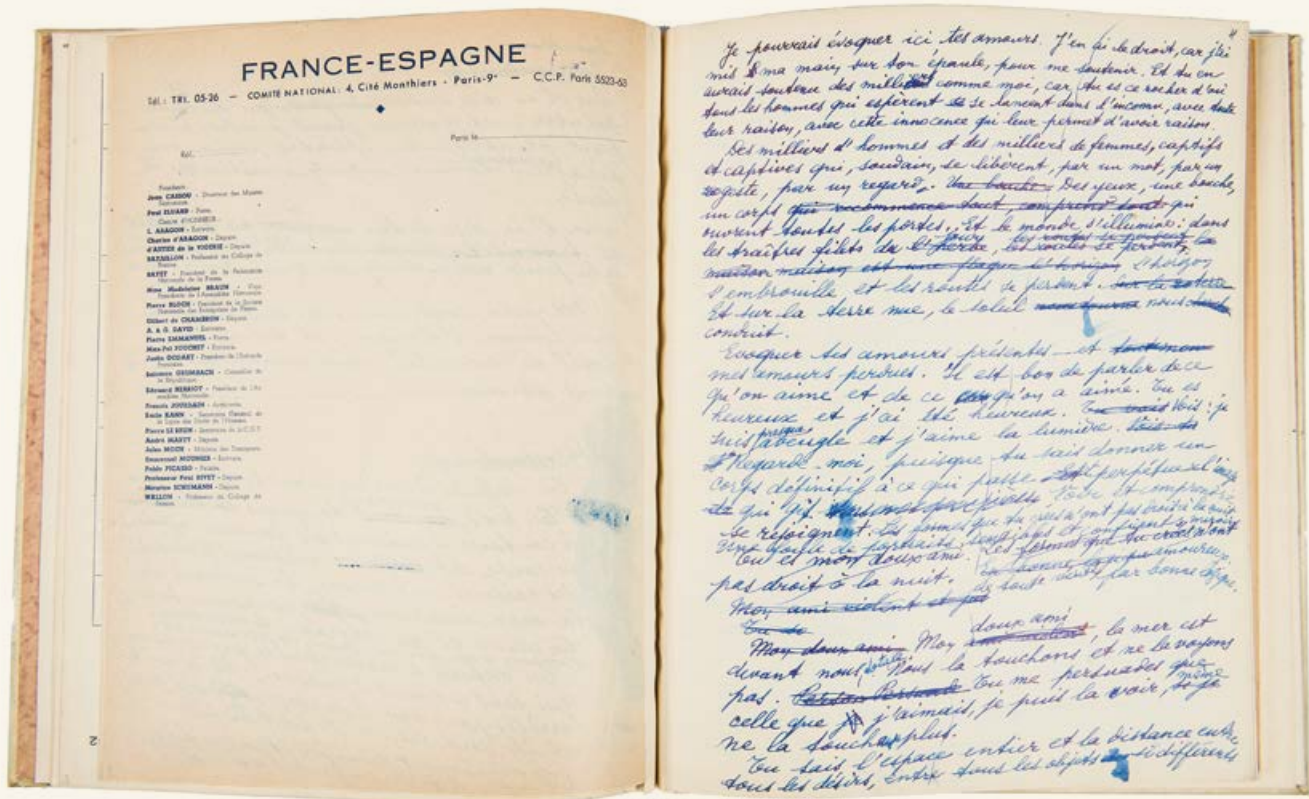 FRANCE-ESPAGNE
Tél.: TRI. 05-26 — COMITÉ NATIONAL: 4, Cité Monthiers - Paris-9e — C.C.P. Paris 5523-53
Paris le
Réf.
Présidents
Jean CASSOU - Directeur des Musées
Paul ELUARD - Poète.
L. ARAGON - Écrivain.
Charles d'ARAGON - Député.
d'ASTIER de la VIGERIE - Député.
- Professeur au Collège de
France.
BAYET - Président de la Fédération
Nationale de la Presse.
Mme Madeleine BRAUN - Vice-
Présidente de l'Assemblée Nationale
Pierre BLOCH - Président de la Société
Nationale des Entreprises de Presse.
Gilbert de CHAMBRUN - Député.
A. & G. DAVID - Écrivains
Pierre EMMANUEL - Poète.
Max-Pol FOUCHET - Écrivain.
Justin GODART - Président de l'Entraide
Française.
Salomon GRUMBACH - Conseiller de
la République.
Edouard HERRIOT - Président de l'As-
semblée Nationale.
Francis JOURDAIN -
Emile KAHN - Secrétaire Général de
la Ligue des Droits de l'Homme.
Pierre LE BRUN - Secrétaire de la C.G.T.
André MARTY - Député.
Jules MOCH - Ministre des Transports.
Emmanuel MOUNIER - Écrivain.
Pablo PICASSO - Peintre.
Professeur Paul RIVET - Député.
Maurice SCHUMANN - Député.
WALLON - Professeur au Collège de
France.
2
4
Je pourrais évoquer ici tes amours. J'en ai le droit, car j'ai
mis ma main sur ton épaule, pour me soutenir. Et tu en
aurais soutenu des milliers comme moi, car tu es ce rocher d'où
tous les hommes qui espèrent se lancent dans l'inconnu, avec toute
leur raison, avec cette innocence qui leur permet d'avoir raison.
Des milliers d'hommes et des milliers de femmes, captifs
et captives qui, soudain, se libèrent, par un mot, par un
geste, par un regard. Une bouche Des yeux, une bouche,
un corps qui recommence tout, comprend tout qui
ouvrent toutes les portes. Et le monde s'illumine: dans
les traîtres filets de l'herbe, les routes se perdent, la
maison maison est une flaque l'horizon L'horizon
s'embrouille et les routes se perdent. Sur la
Et sur la terre nue, le soleil nous
conduit.
Evoquer tes amours présentes et tout mon
mes amours perdues. Il est bon de parler de ce
qu'on aime et de ce qu'on a aimé. Tu es
heureux et j'ai été heureux. Tu vois Vois: je
suis presque aveugle et j'aime la lumière. Vois
Regarde-moi, puisque tu sais donner un
corps définitif à ce qui passe perpétuel
qui gît. Voir et comprendre
se rejoignent. Les formes que tu crées n'ont pas droit à la nuit
Tu es mon doux ami. Les formes que tu crées n'ont
pas droit à la nuit.
Mon ami violent et
Tu
Mon doux ami Mon doux ami, la mer est
devant nous totale. Nous la touchons et ne la voyons
pas. Tu me persuades que
celle que j'aimais, je puis la voir, même
ne la touchant plus.
Tu sais l'espace entier et la distance entre
tous les désirs, entre tous les objets si différents